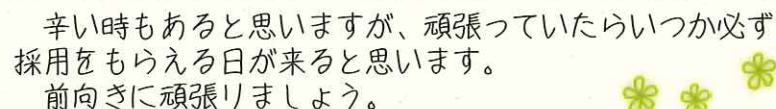 辛い時もあると思いますが、頑張っていたらいつか必ず
採用をもらえる日が来ると思います。
前向きに頑張りましょう。